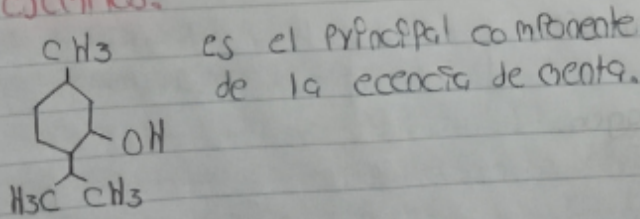 CH3
es el principal componente
de la ecencia de menta.
OH
H3C CH3